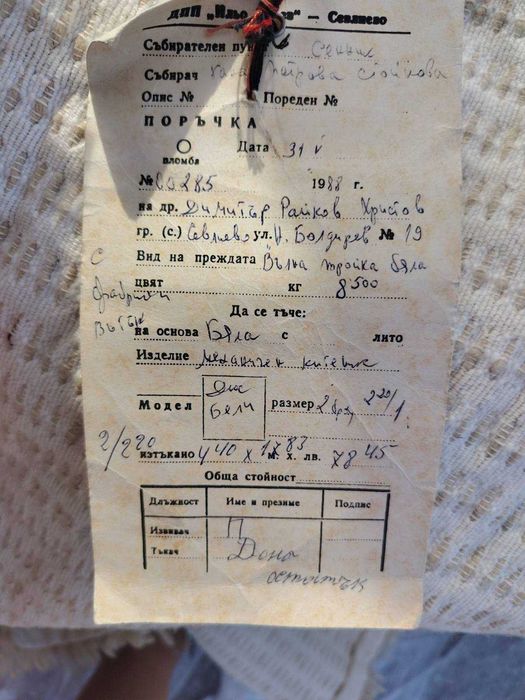 ДПП „Ильо — Севлиево
Събирателен пункт Сенник
Събирач Петрова Стойкова
Опис № Пореден №
ПОРЪЧКА
пломба Дата 31 V
№ 00285 1988 г.
на др. Димитър Райков Христов
гр. (с.) Севлиево ул. Н. Болдирев № 19
Вид на преждата Вълна тройка бяла
цвят кг 8500
с фабричен вътък
Да се тъче:
на основа Бяла с лито
Изделие механичен китеник
Модел бели размер 2 бр. 220/1
2/220
изтъкано 440 х м. х. лв. 78 45
Обща стойност
Длъжност Име и презиме Подпис
Извивач П
Тъкач Дона
остатък